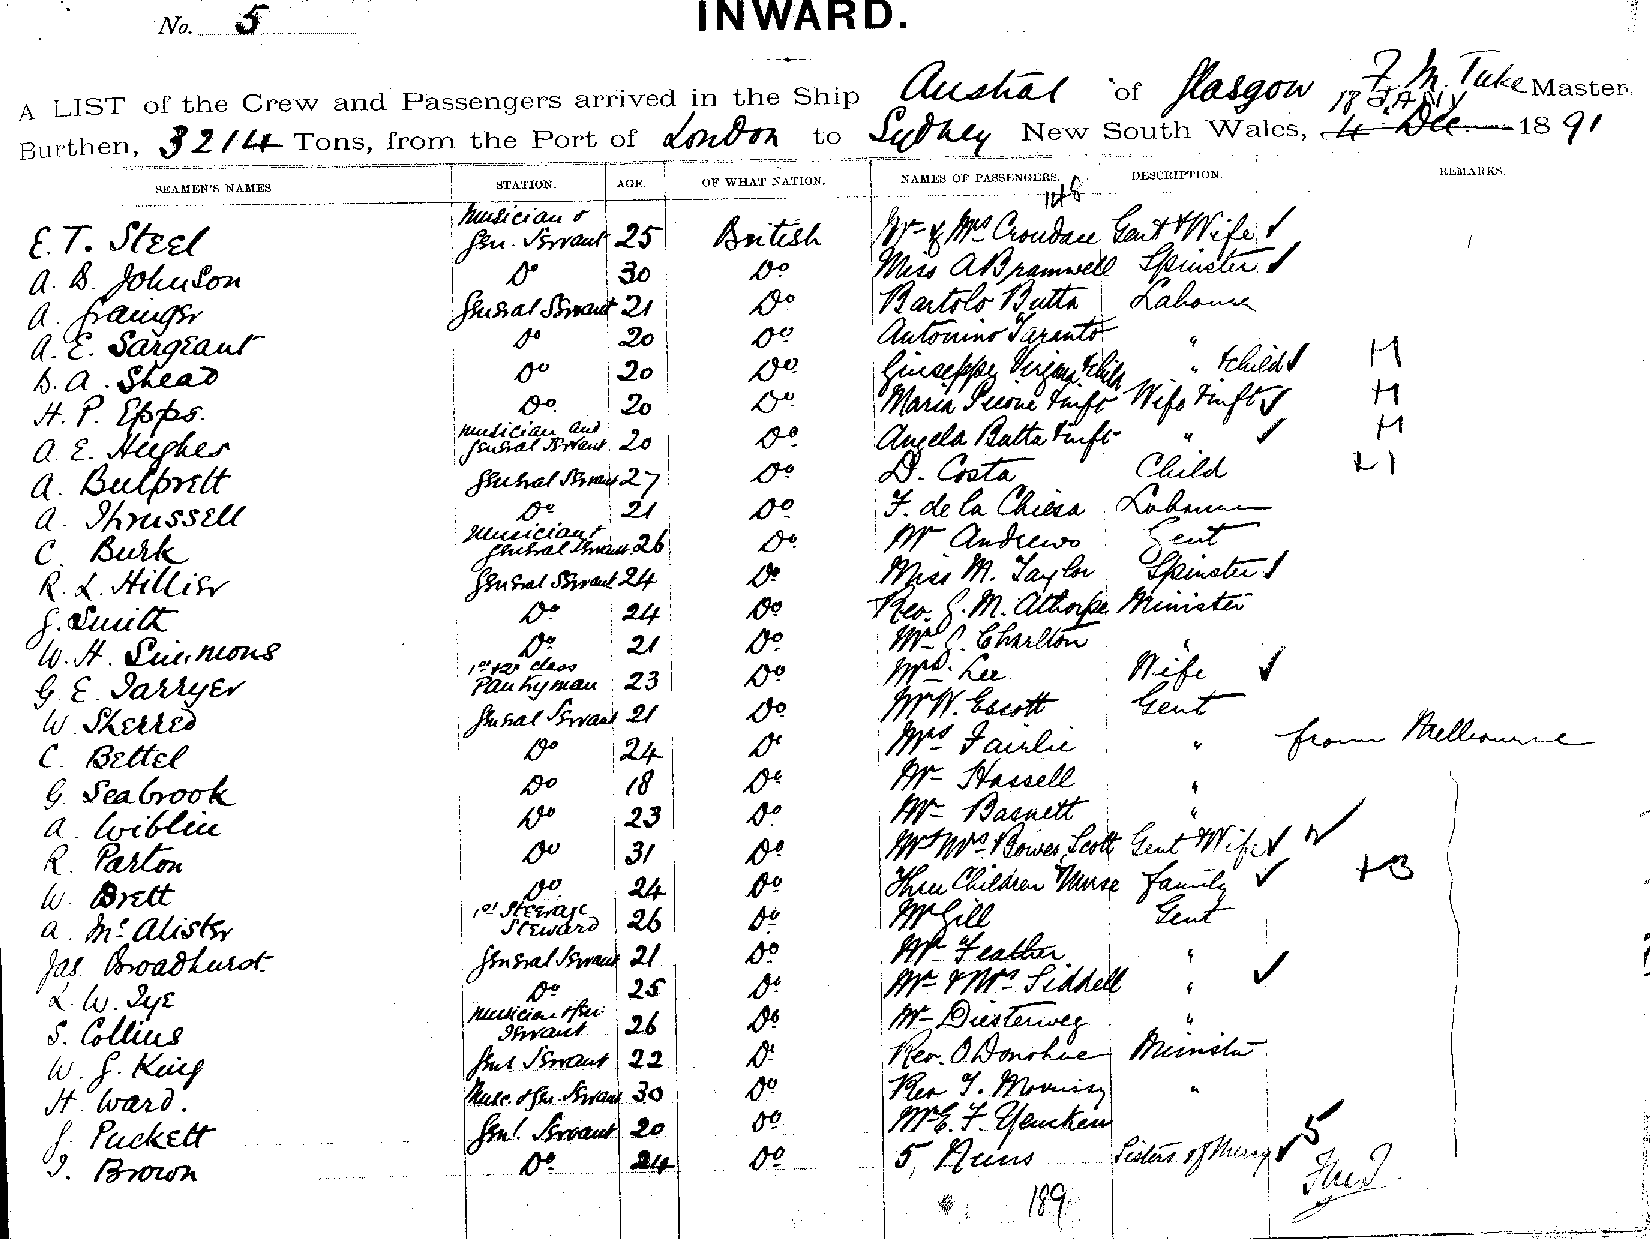 No. 5
INWARD.
A LIST of the Crew and Passengers arrived in the Ship Austral of Glasgow F. M. Tuke Master,
Burthen, 3214 Tons, from the Port of London to Sydney New South Wales, 4 Dec 1891
SEAMEN'S NAMES STATION. AGE. OF WHAT NATION. NAMES OF PASSENGERS. DESCRIPTION. REMARKS.
148
E. T. Steel Musician & Gen. Servant 25 British Mr & Mrs Croudace Gent & Wife ✓
A. B. Johnson Do 30 Do Miss A Bramwell Spinster ✓
A. Grainger General Servant 21 Do Bartolo Butta Labourer
A. E. Sargeant Do 20 Do Antonino Taranto "
B. A. Shead Do 20 Do Giuseppe & Child " & Child ✓ H
H. P. Epps. Do. 20 Do Maria Picone & inft Wife & inft ✓ H
A. E. Hughes Musician and General Servant 20 Do Angela Butta & inft " ✓ H
A. Bulpritt General Servant 27 Do D. Costa Child
A. Thrussell Do 21 Do F. de la Chiesa Labourer
C. Burk Musician & General Servant 26 Do Mr Andrews Gent
R. L. Hillier General Servant 24 Do Miss M. Taylor Spinster ✓
J. Smith Do 24 Do Rev. J. M. Althorpe Minister
W. H. Simmons Do 21 Do C. Charlton "
G. E. Tarryer 1st & 2nd class Pantryman 23 Do Mrs. Lee Wife ✓
W Sherred General Servant 21 Do Mr W. Escott Gent
C. Bettel Do 24 Do Mrs Fairlie " from Melbourne
G. Seabrook Do 18 Do Mr Hassell "
A. Wiblin Do 23 Do Mr Basnett "
R. Parton Do 31 Do Mr & Mrs Bowes Scott Gent & Wife ✓
W. Brett Do 24 Do Three Children & Nurse Family ✓ +3
A. McAlister 1st Steerage Steward 26 Do Mr Gill Gent
Jas. Broadhurst General Servant 21 Do Mr Feather "
L. W. Tye Do 25 Do Mr & Mrs Siddell " ✓
S. Collins Musician & Gen Servant 26 Do Mr Diesterweg "
W. J. King Gen Servant 22 Do Rev. O'Donohue Minister
H. Ward. Musc. & Gen. Servant 30 Do Rev T. Morrissy "
J. Puckett Genl. Servant 20 Do Mr E. F. Yencken
J. Brown Do 24 Do 5 Nuns Sisters of Mercy ✓ 5
189